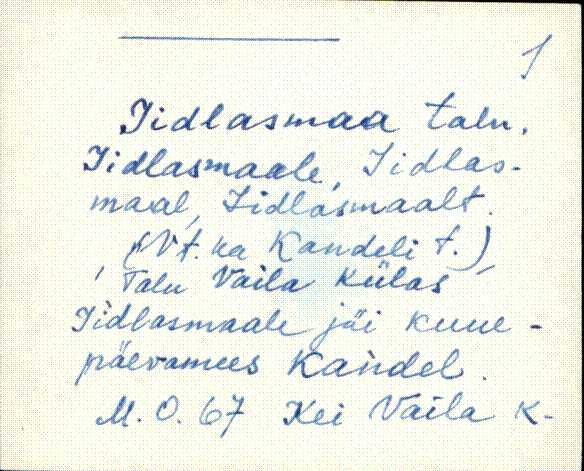 1
Iidlasmaa talu.
Iidlasmaale, Iidlas-
maal, Iidlasmaalt.
(Vt. ka Kandeli t.)
, Talu Vaila külas,
Iidlasmaale jäi kuue-
päevamees Kandel.
M. O. 67 Kei Vaila k-